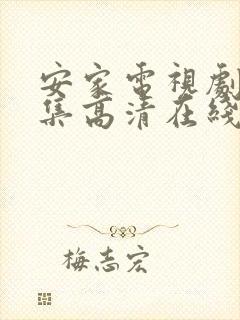 安家電視劇
集高清在綫
梅志宏